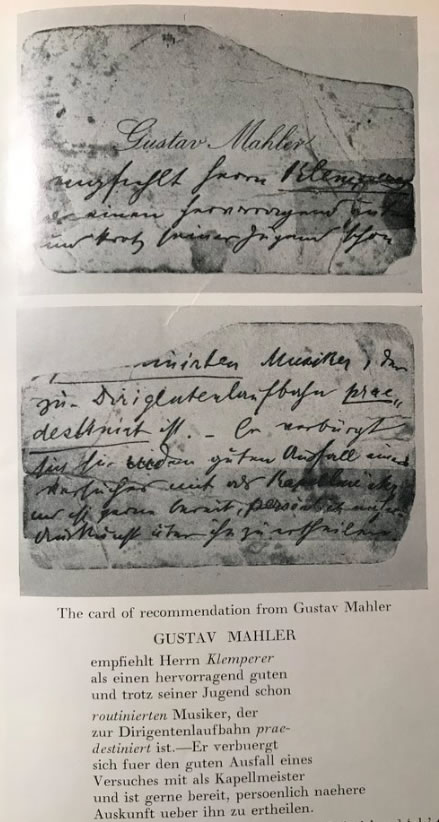 Gustav Mahler
empfiehlt Herrn Klemperer
als einen hervorragend guten
und trotz seiner Jugend schon
routinirten Musiker, der
zur Dirigentenlaufbahn prae-
destinirt ist. – Er verbürgt
sich für den guten Ausfall eines
Versuches mit als Kapellmeister
und ist gerne bereit, persönlich nähere
Auskunft über ihn zu ertheilen
The card of recommendation from Gustav Mahler
GUSTAV MAHLER
empfiehlt Herrn Klemperer
als einen hervorragend guten
und trotz seiner Jugend schon
routinierten Musiker, der
zur Dirigentenlaufbahn prae-
destiniert ist.—Er verbuergt
sich fuer den guten Ausfall eines
Versuches mit als Kapellmeister
und ist gerne bereit, persoenlich naehere
Auskunft ueber ihn zu ertheilen.